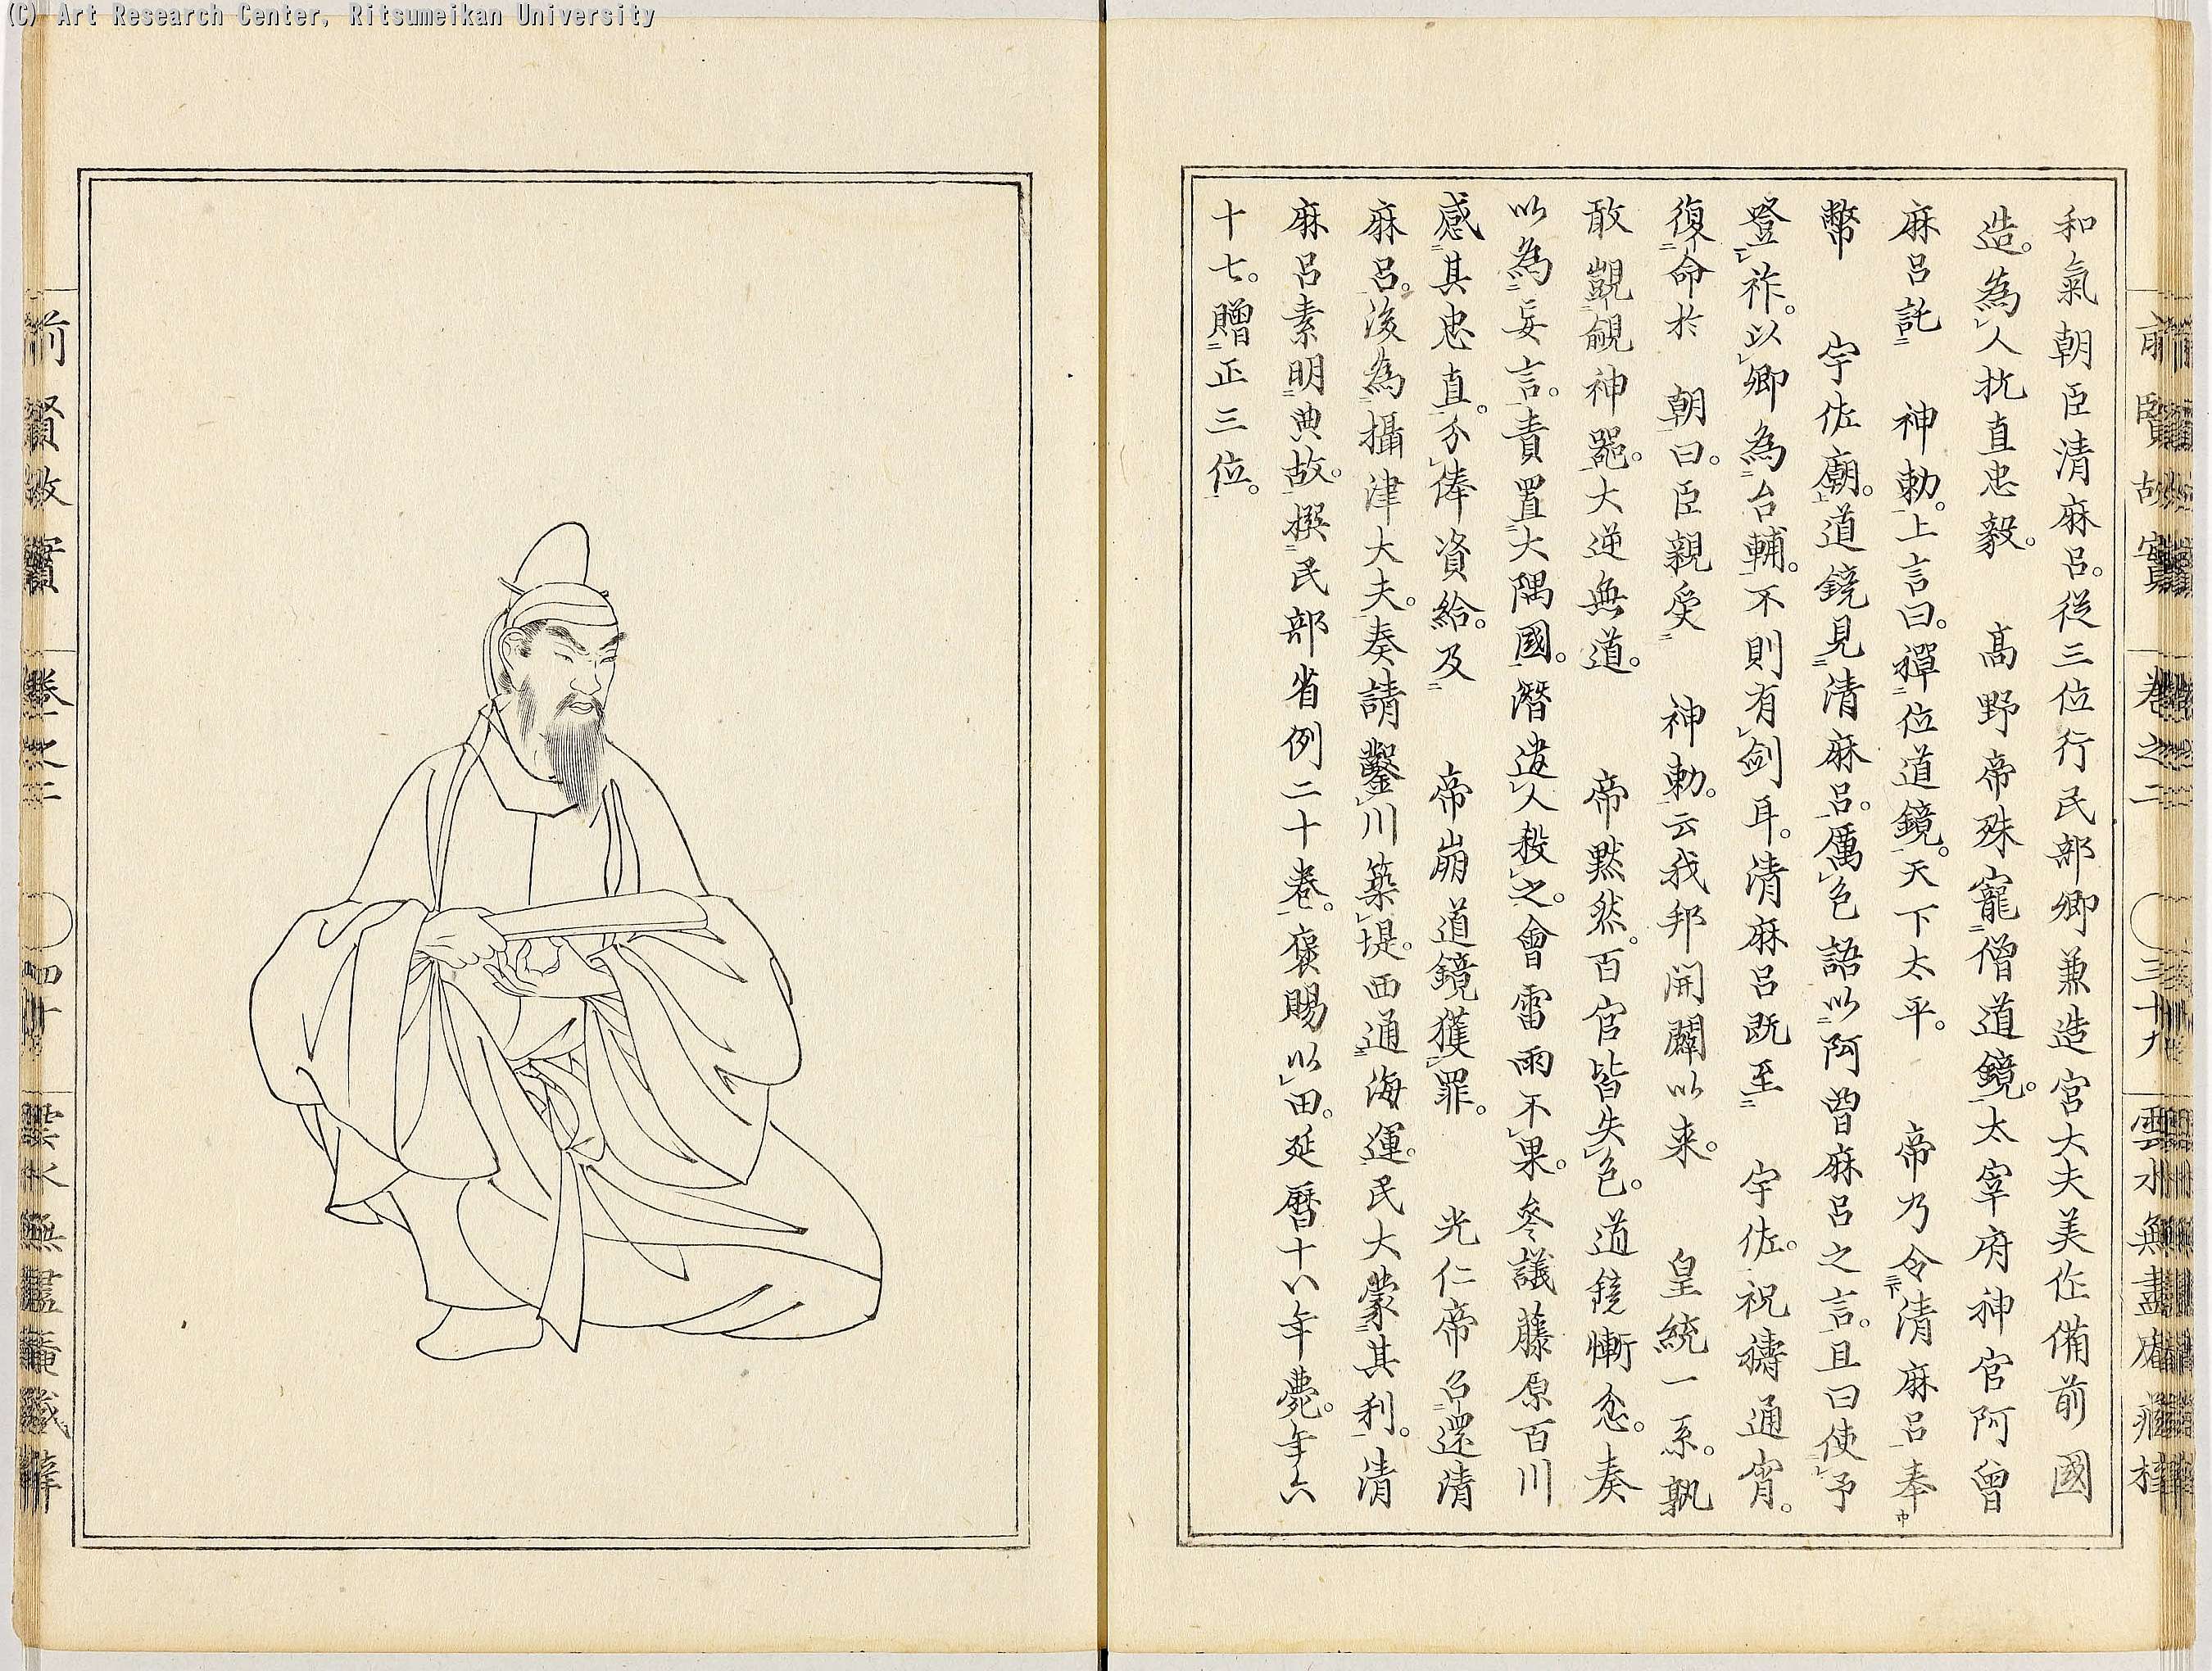 (C) Art Research Center, Ritsumeikan University
前賢故實 卷之二 三十九 雲水無盡庵
和氣朝臣清麻呂。從三位行民部卿兼造宮大夫美作備前國
造。為人抗直忠毅。 高野帝殊寵僧道鏡。太宰府神官阿曾
麻呂託 神勅。上言曰。禪位道鏡。天下太平。 帝乃令清麻呂奉
幣 宇佐廟。道鏡見清麻呂。厲色語以阿曾麻呂之言。且曰使予
登祚。以卿為台輔。不則有劍耳。清麻呂既至 宇佐。祝禱通宵。
復命於 朝曰。臣親受 神勅。云我邦開闢以来。 皇統一系。孰
敢覬覦神器。大逆無道。 帝默然。百官皆失色。道鏡慚忿。奏
以為妄言。責置大隅國。潛遣人殺之。會雷雨不果。參議藤原百川
感其忠直。分俸資給。及 帝崩道鏡獲罪。 光仁帝召還清
麻呂。後為攝津大夫。奏請鑿川築堤。西通海運。民大蒙其利。清
麻呂素明典故。撰民部省例二十卷。褒賜以田。延曆十八年薨。年六
十七。贈正三位。
前賢故實 卷之二 四十 雲水無盡庵藏